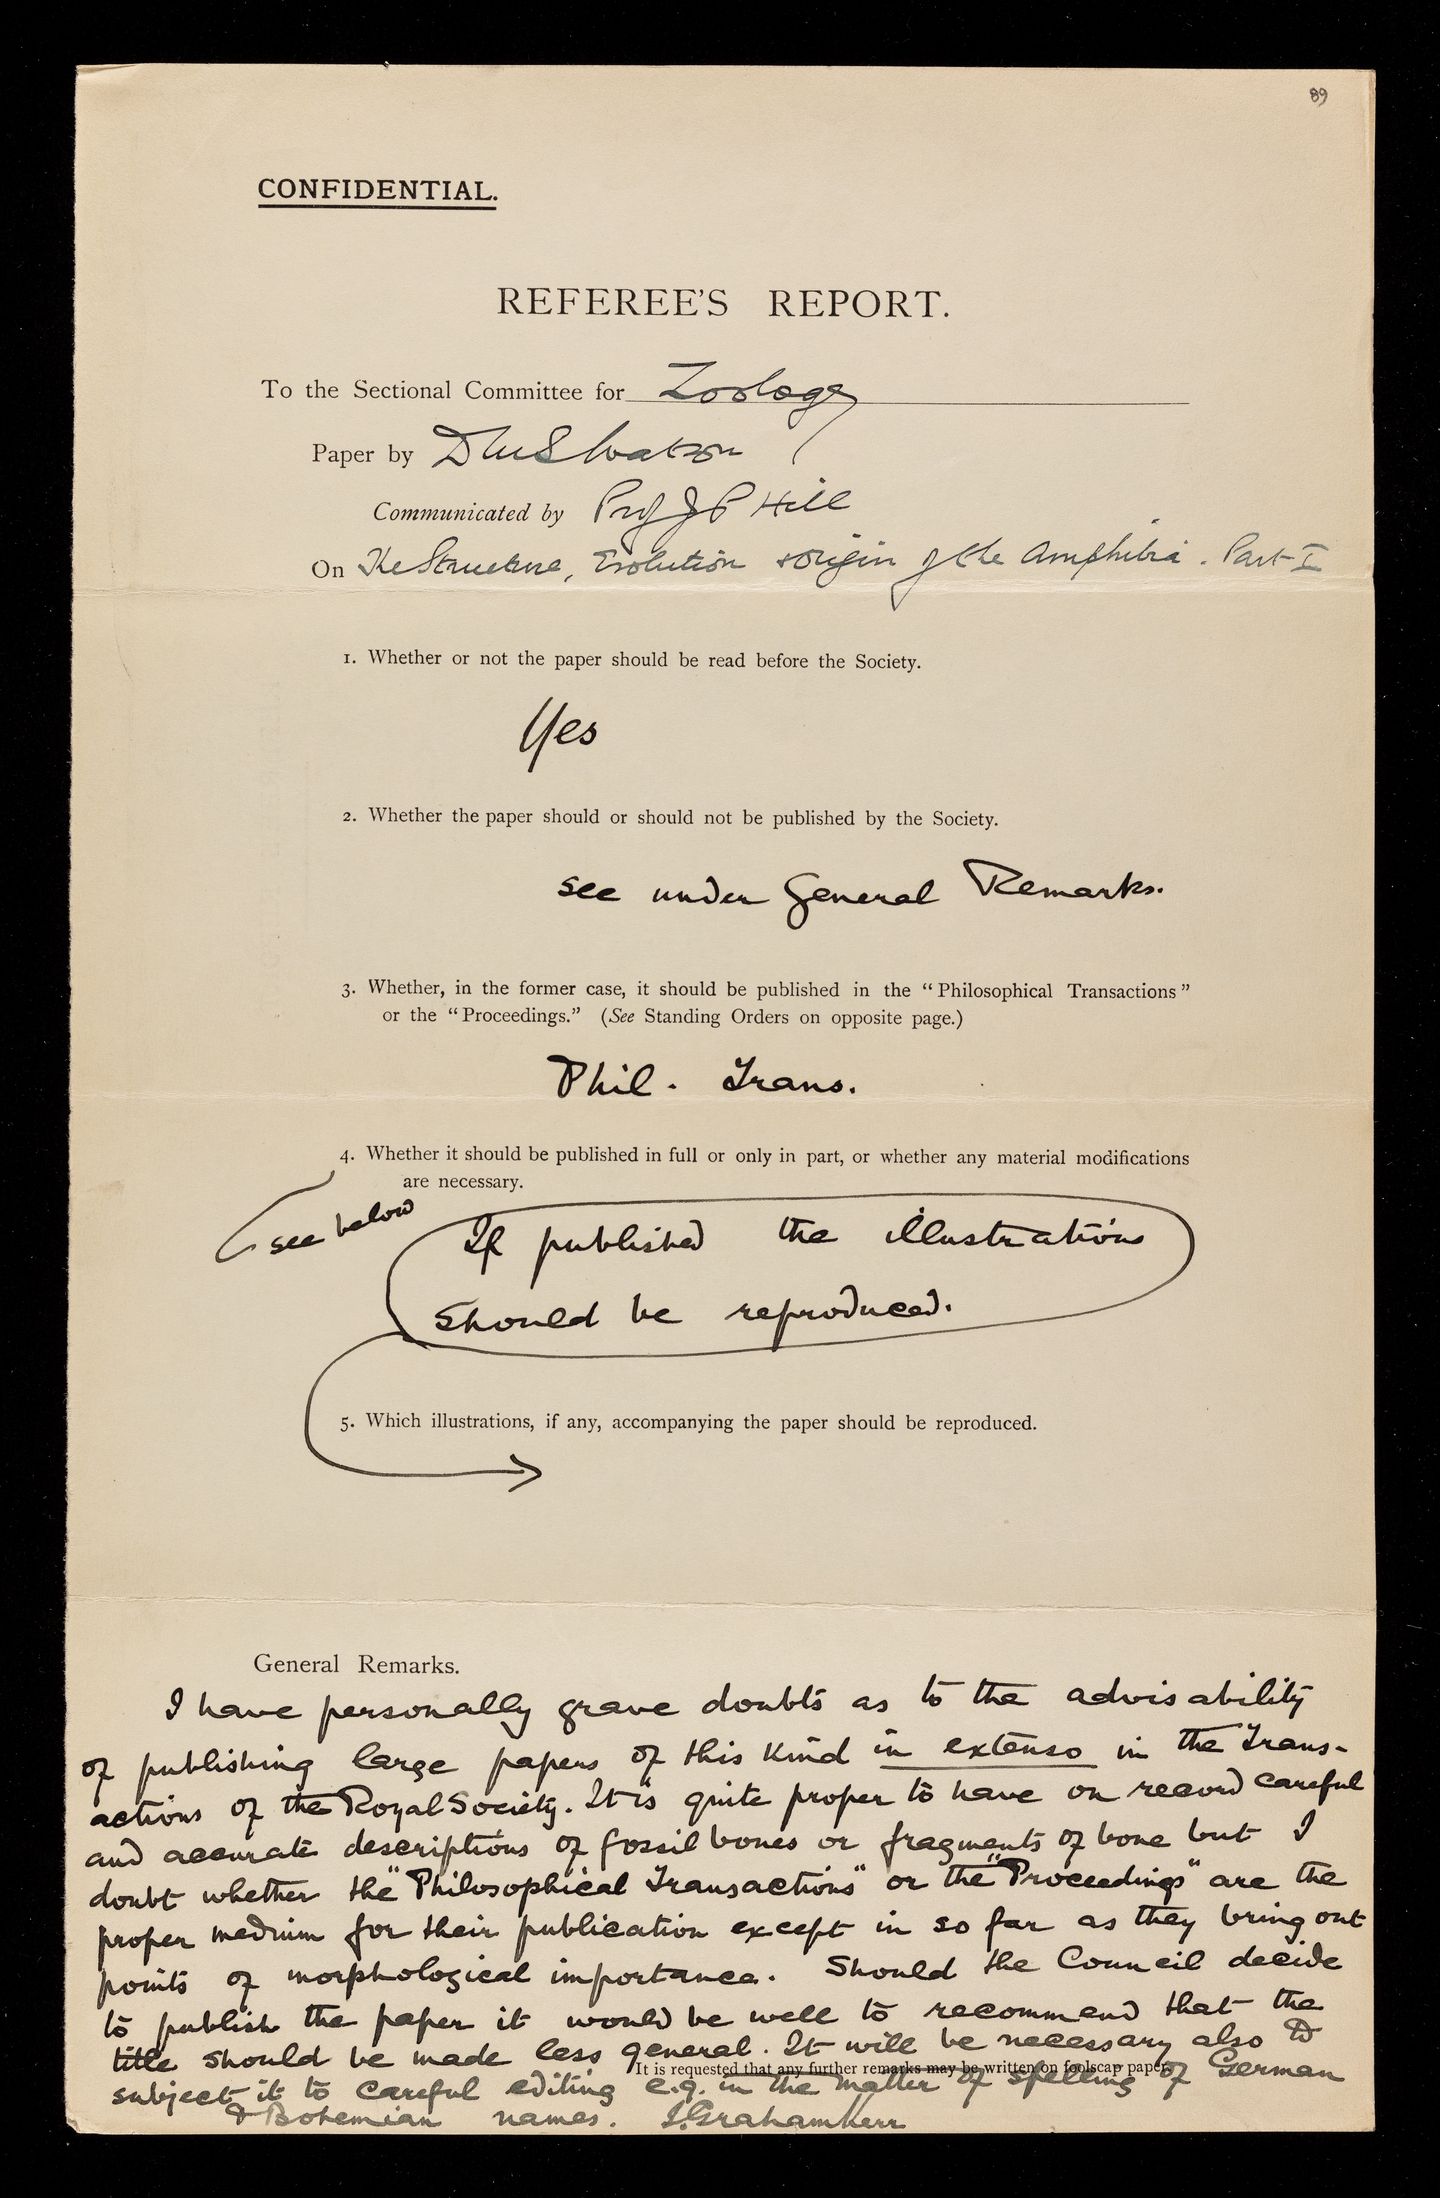 89
CONFIDENTIAL.
REFEREE'S REPORT.
To the Sectional Committee for Zoology
Paper by D M S Watson
Communicated by Prof J P Hill
On The Structure, Evolution & Origin of the Amphibia. Part I
1. Whether or not the paper should be read before the Society.
Yes
2. Whether the paper should or should not be published by the Society.
see under General Remarks.
3. Whether, in the former case, it should be published in the "Philosophical Transactions"
or the "Proceedings." (See Standing Orders on opposite page.)
Phil. Trans.
4. Whether it should be published in full or only in part, or whether any material modifications
are necessary.
see below
If published the illustrations
should be reproduced.
5. Which illustrations, if any, accompanying the paper should be reproduced.
General Remarks.
I have personally grave doubts as to the advisability
of publishing large papers of this kind in extenso in the Trans-
actions of the Royal Society. It is quite proper to have on record careful
and accurate descriptions of fossil bones or fragments of bone but I
doubt whether the "Philosophical Transactions" or the "Proceedings" are the
proper medium for their publication except in so far as they bring out
points of morphological importance. Should the Council decide
to publish the paper it would be well to recommend that the
title should be made less general. It will be necessary also to
It is requested that any further remarks may be written on foolscap paper.
subject it to careful editing e.g. in the matter of spelling of German
& Bohemian names. J. Graham Kerr